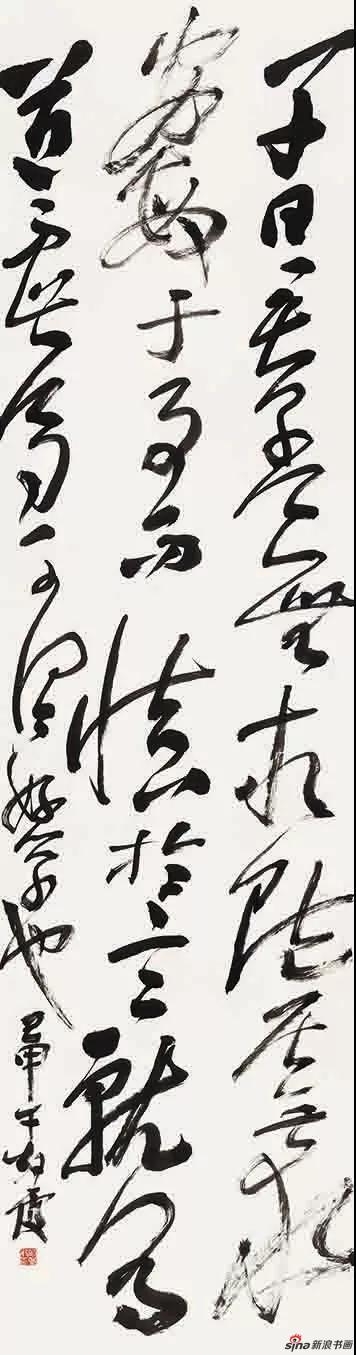 子曰君子食無求飽居無求
安敏于事而慎於言就有
道而正焉可謂好學也
sina新浪书画